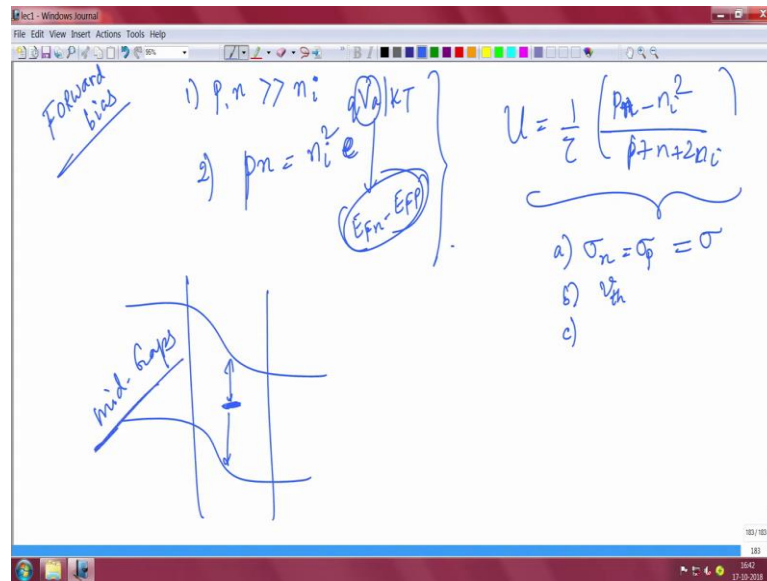 lec1 - Windows Journal
File Edit View Insert Actions Tools Help
96%
B I
Forward bias
1) p, n >> ni
2) pn = ni² e qVa/KT
EFn - EFp
U = 1/τ (pn - ni² / p+n+2ni)
a) σn = σp = σ
b) vth
c)
mid-Gaps
183/183
183
16:42
17-10-2018